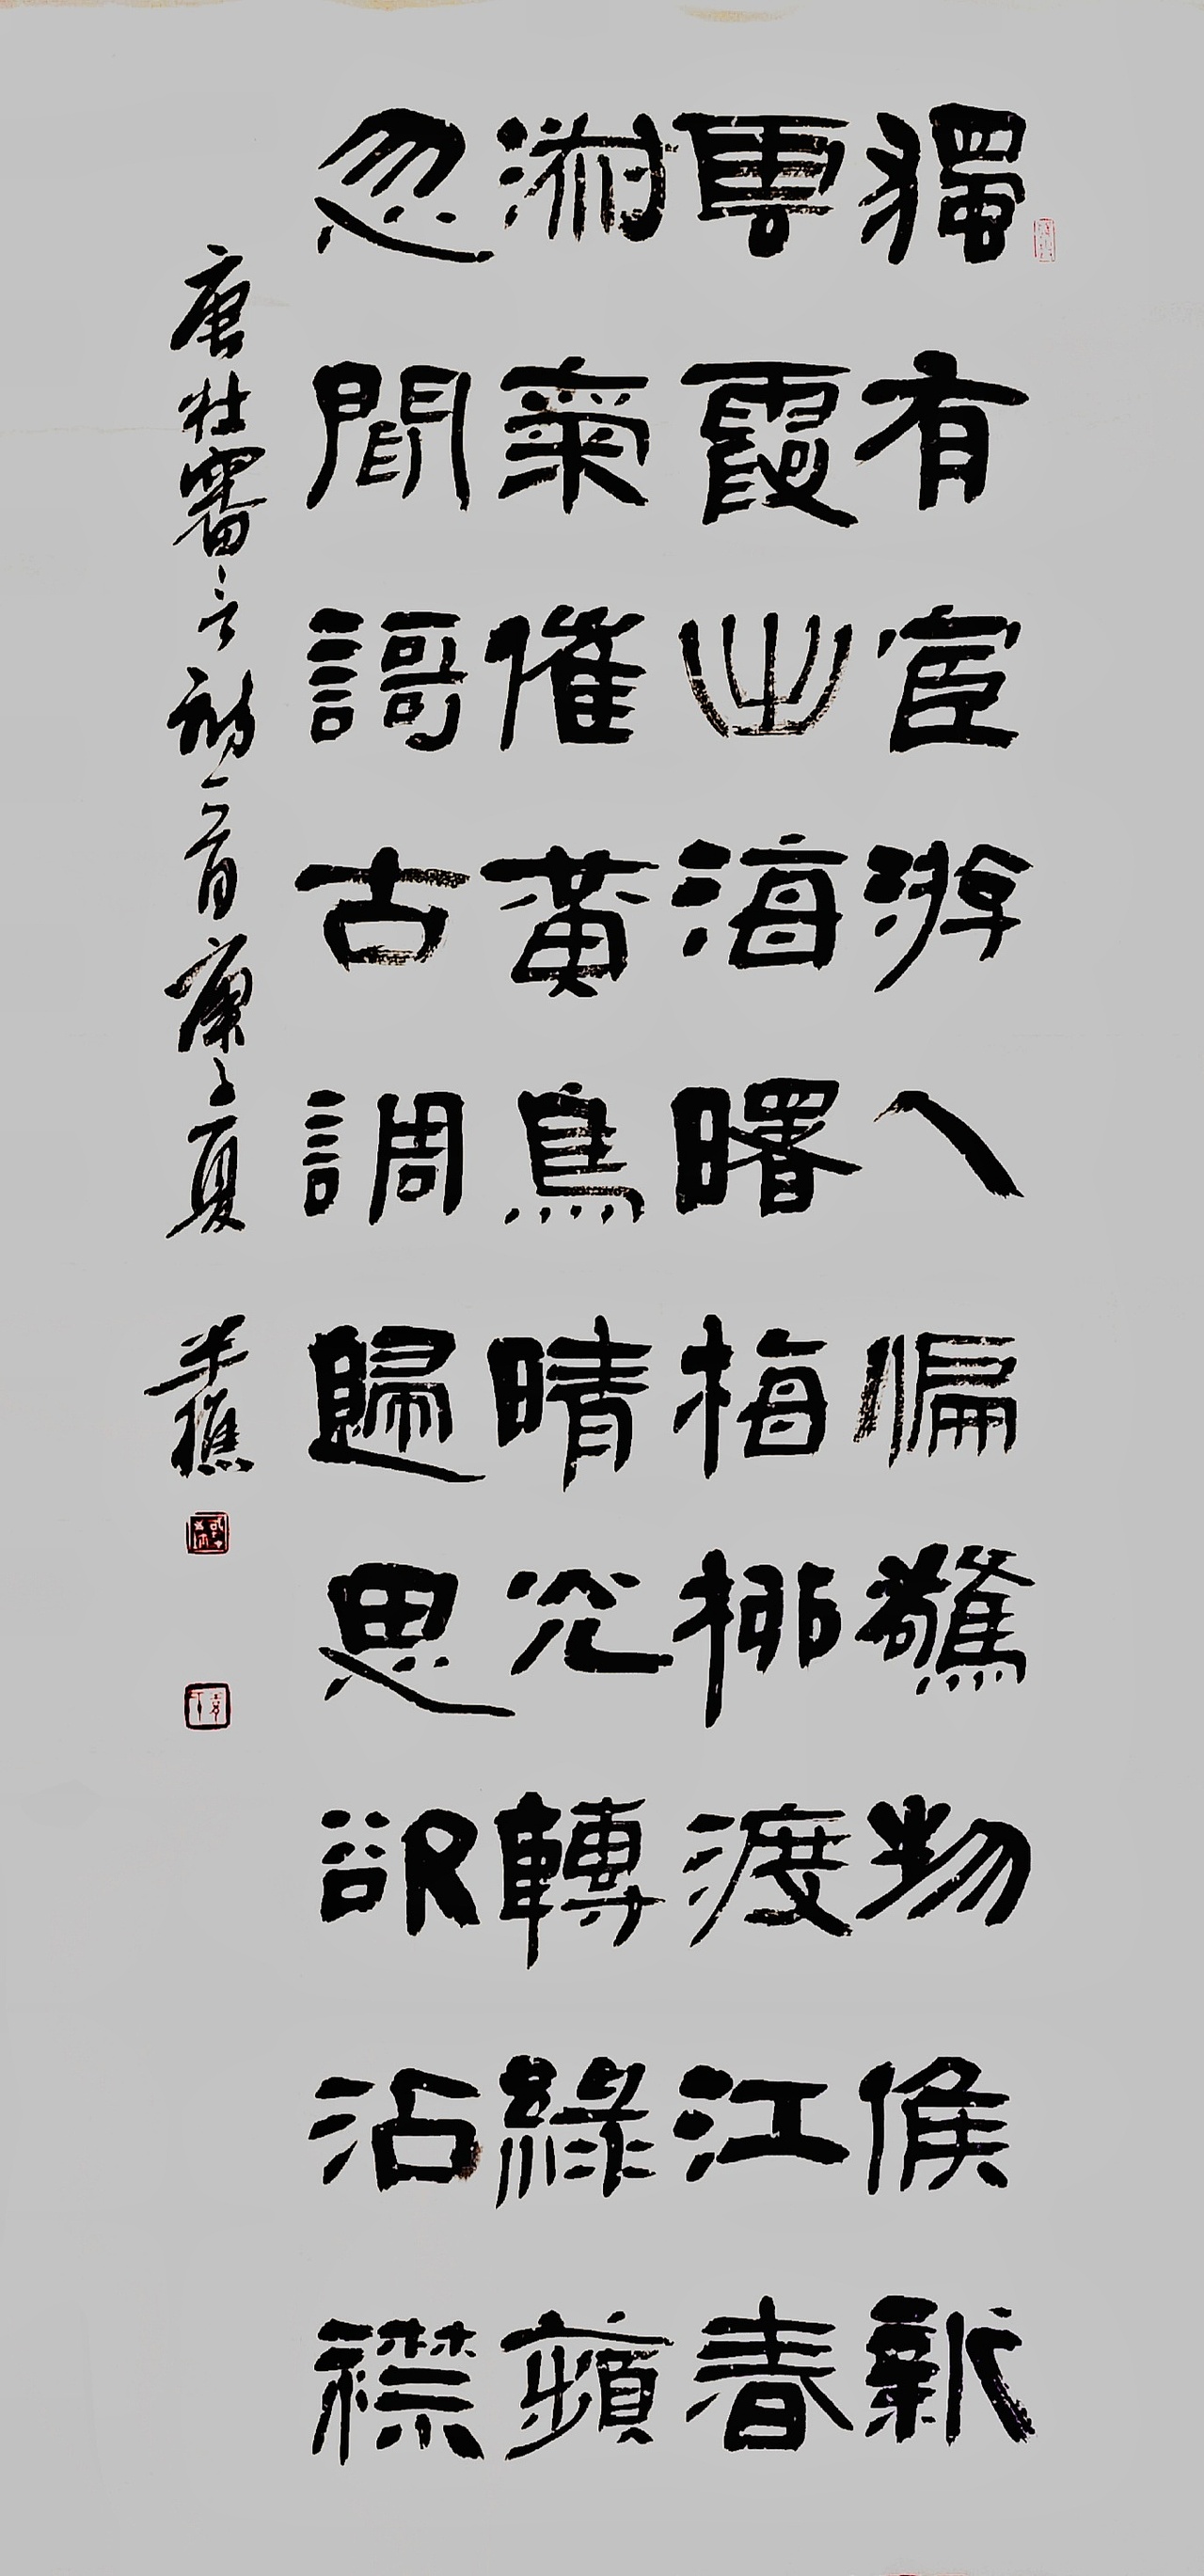 獨有宦游人偏驚物候新
雲霞出海曙梅柳渡江春
淑氣催黃鳥晴光轉綠蘋
忽聞謌古調歸思欲沾襟
唐杜審言詩一首庚子夏 半樵